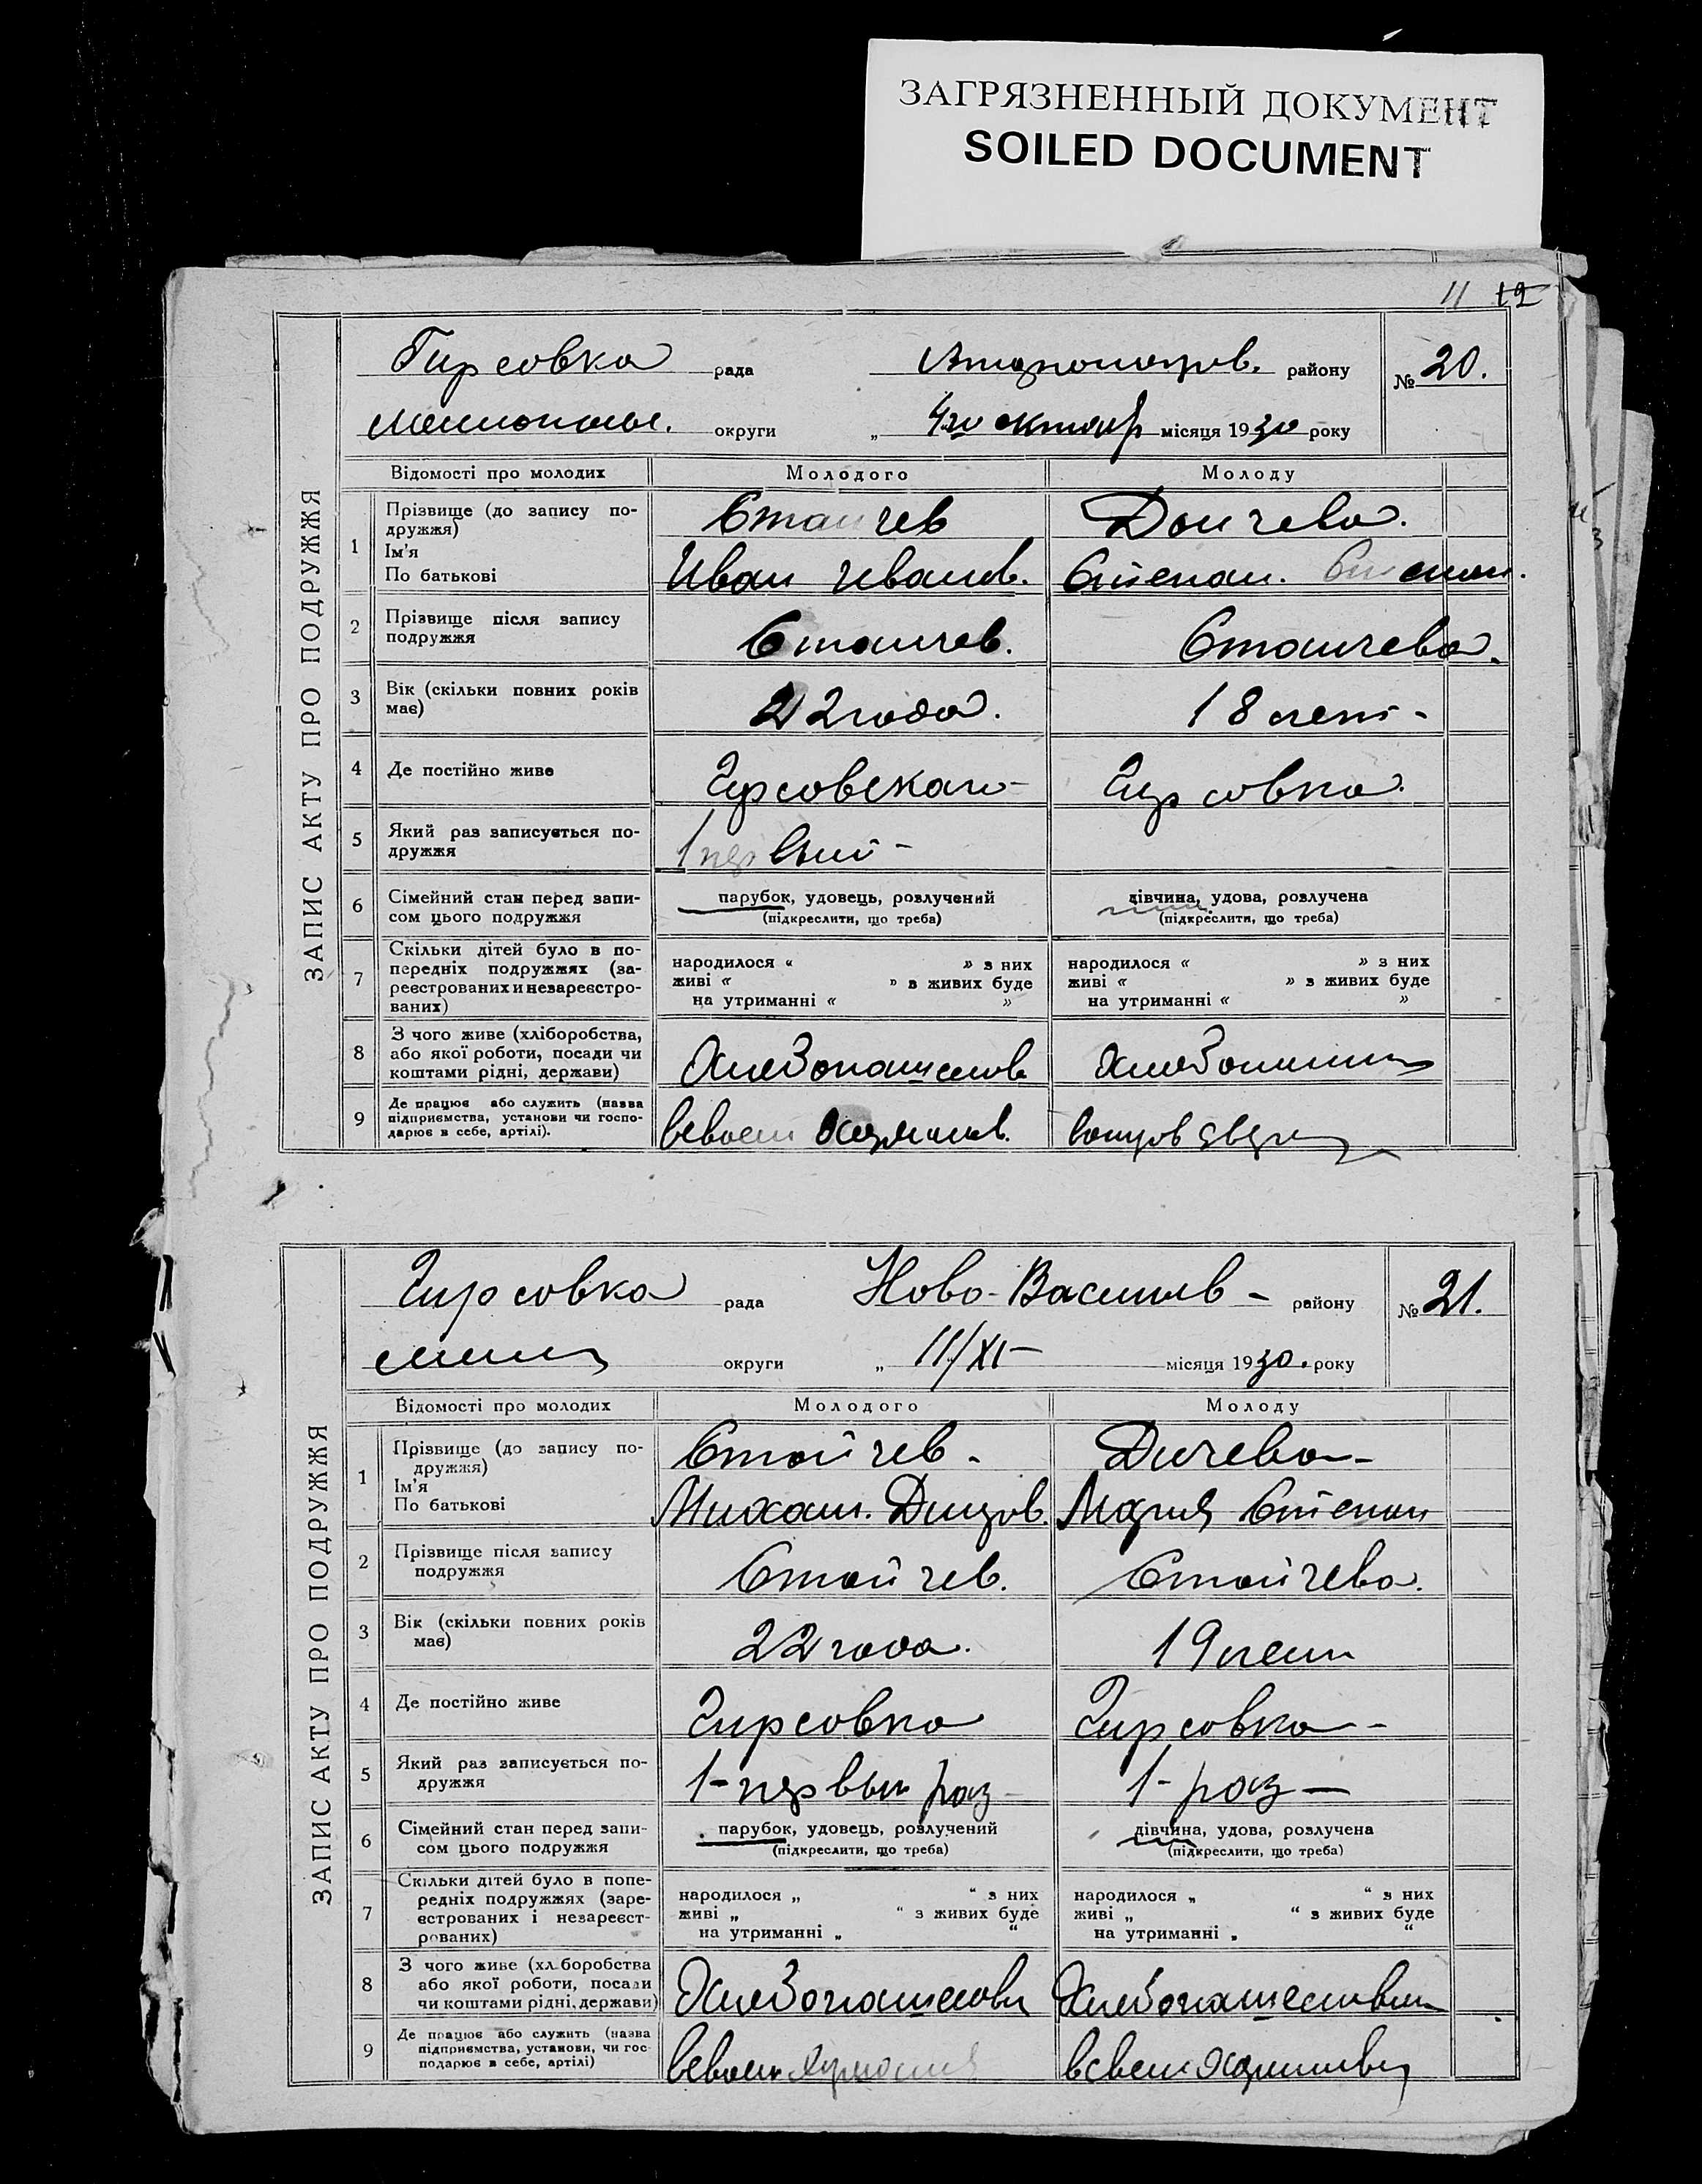 ЗАГРЯЗНЕННЫЙ ДОКУМЕНТ
SOILED DOCUMENT
11 12
ЗАПИС АКТУ ПРО ПОДРУЖЖЯ
Гирсовка рада району № 20.
округи „ 4го октяр місяця 1930 року
Відомості про молодих Молодого Молоду
1 Прізвище (до запису подружжя) Станчев Дончева.
Ім'я
По батькові Иван Иванов. Степан. Степан.
2 Прізвище після запису подружжя Станчев. Станчева.
3 Вік (скільки повних років має) 22 года. 18 лет -
4 Де постійно живе Гирсовскаго - Гирсовка.
5 Який раз записується подружжя 1 первый -
6 Сімейний стан перед записом цього подружжя парубок, удовець, розлучений дівчина, удова, розлучена
(підкреслити, що треба) (підкреслити, що треба)
7 Скільки дітей було в попередніх подружжях (зареєстрованих и незареєстрованих)
народилося « » з них народилося « » з них
живі « » з живих буде живі « » з живих буде
на утриманні « » на утриманні « »
8 З чого живе (хліборобства, або якої роботи, посади чи коштами рідні, держави) Хлебопашеств
9 Де працює або служить (назва підприємства, установи чи господарює в себе, артілі).
ЗАПИС АКТУ ПРО ПОДРУЖЖЯ
Гирсовка рада Ново-Васильев - району № 21.
округи „ 11/XI - місяця 1930. року
Відомості про молодих Молодого Молоду
1 Прізвище (до запису подружжя) Стойчев - Дичева -
Ім'я
По батькові Михаил. Дмитров. Мария Степан
2 Прізвище після запису подружжя Стойчев. Стойчева.
3 Вік (скільки повних років має) 22 года. 19 лет
4 Де постійно живе Гирсовка Гирсовка -
5 Який раз записується подружжя 1 - первый раз 1 - раз —
6 Сімейний стан перед записом цього подружжя парубок, удовець, розлучений дівчина, удова, розлучена
(підкреслити, що треба) (підкреслити, що треба)
7 Скільки дітей було в попередніх подружжях (зареєстрованих і незареєстрованих)
народилося „ “ з них народилося „ “ з них
живі „ “ з живих буде живі „ “ з живих буде
на утриманні „ “ на утриманні „ “
8 З чого живе (хліборобства або якої роботи, посади чи коштами рідні, держави) Хлебопашеством Хлебопашеством
9 Де працює або служить (назва підприємства, установи, чи господарює в себе, артілі)